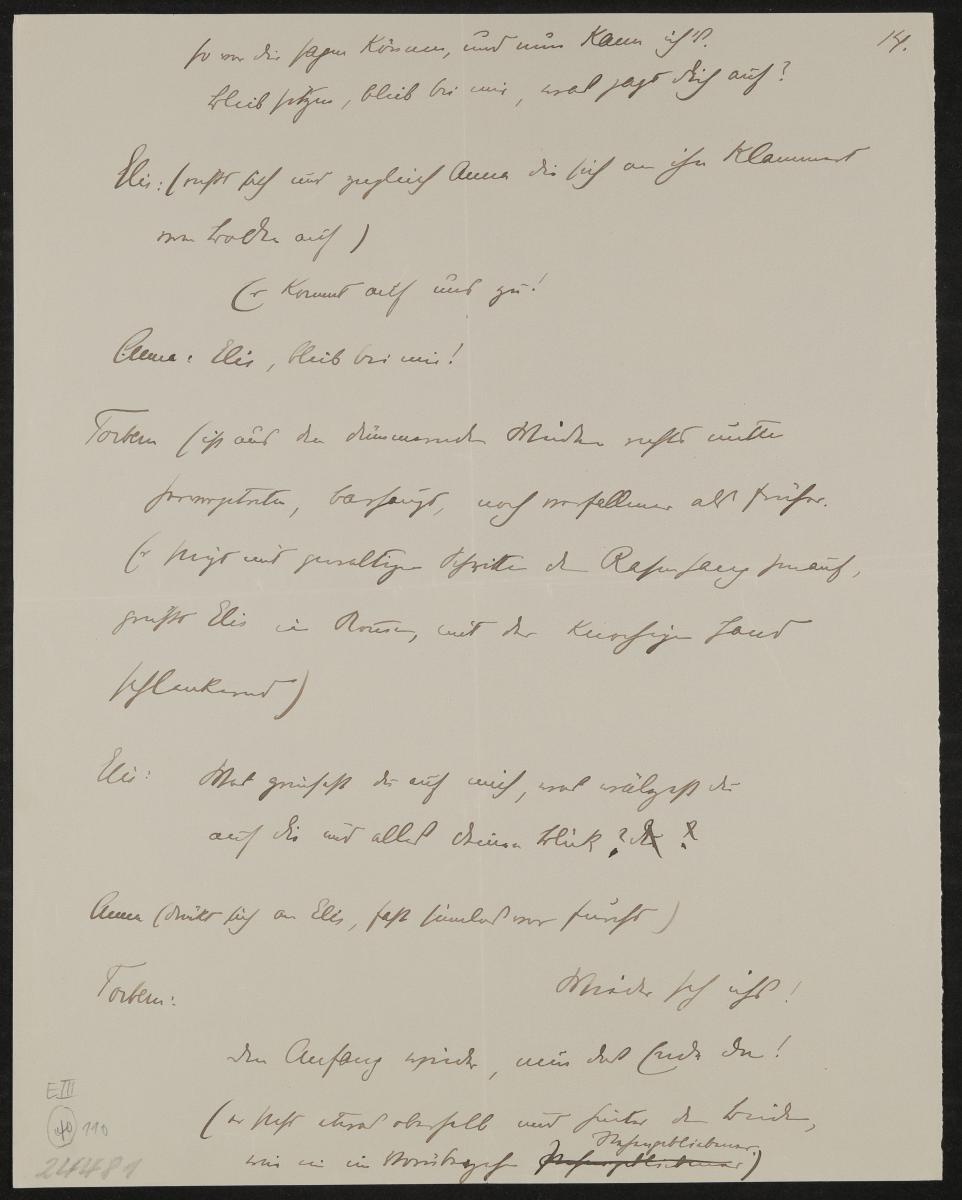 14.
so vor dir sagen können, und nun kann ich's.
Bleib sitzen, bleib bei mir, was jagt dich auf?
Elis: (rafft sich und zugleich Anna die sich an ihn klammert
vom Boden auf)
Er kommt auf uns zu!
Anna: Elis, bleib bei mir!
Torbern (ist aus den dämmernden Weiden rechts unten
hervorgetreten, verfallener als früher.
Er steigt mit gewaltigen Schritten den Rasenhang hinauf,
grüsst Elis mit der knochigen Hand
schlenkernd)
Elis: Was grinsest du auf mich, was wälzest du
auf die und alles deinen Blick?
Anna (drückt sich an Elis, fast sinnlos vor Furcht)
Torbern: Wieder seh ich's!
den Anfang wieder, nun das Ende denn!
(er steht etwas oberhalb und hinter den beiden,
wie ein im Vorübergehen Stehengebliebener.)
E III
40 110
24481